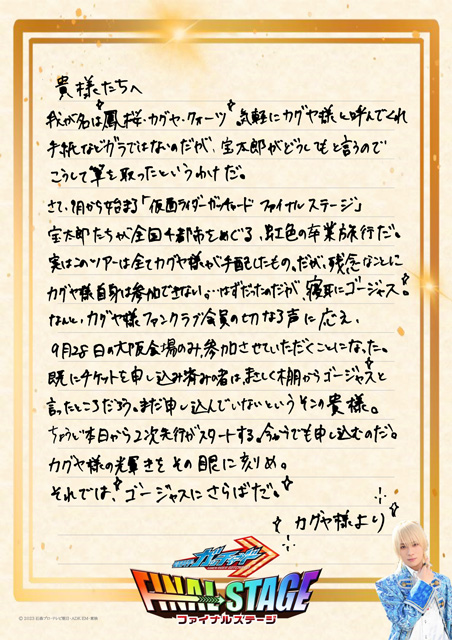 貴様たちへ
我が名は✧鳳桜・カグヤ・クォーツ✧。気軽にカグヤ様と呼んでくれ
手紙などガラではないのだが、宝太郎がどうしてもと言うので
こうして筆を取ったというわけだ。
さて、9月から始まる「仮面ライダーガッチャード ファイナルステージ」
宝太郎たちが全国千都市をめぐる、虹色の卒業旅行だ。
実はこのツアーは全てカグヤ様が手配したもの。だが、残念なことに
カグヤ様自身は参加できない。…はずだったのだが、✧寝耳にゴージャス✧。
なんと、カグヤ様ファンクラブ会員の切なる声に応え、
9月28日の大阪会場のみ、参加させていただくことになった。
既にチケットを申し込み済みの者は、まさしく棚からゴージャス✧と
言ったところだろう。まだ申し込んでいないというそこの貴様。
ちょうど本日から2次先行がスタートする。今からでも申し込むのだ。
カグヤ様の光輝きを その眼に刻め。
それでは、✧ゴージャスにさらばだ。✧
カグヤ様より
仮面ライダーガッチャード
FINAL STAGE
ファイナルステージ